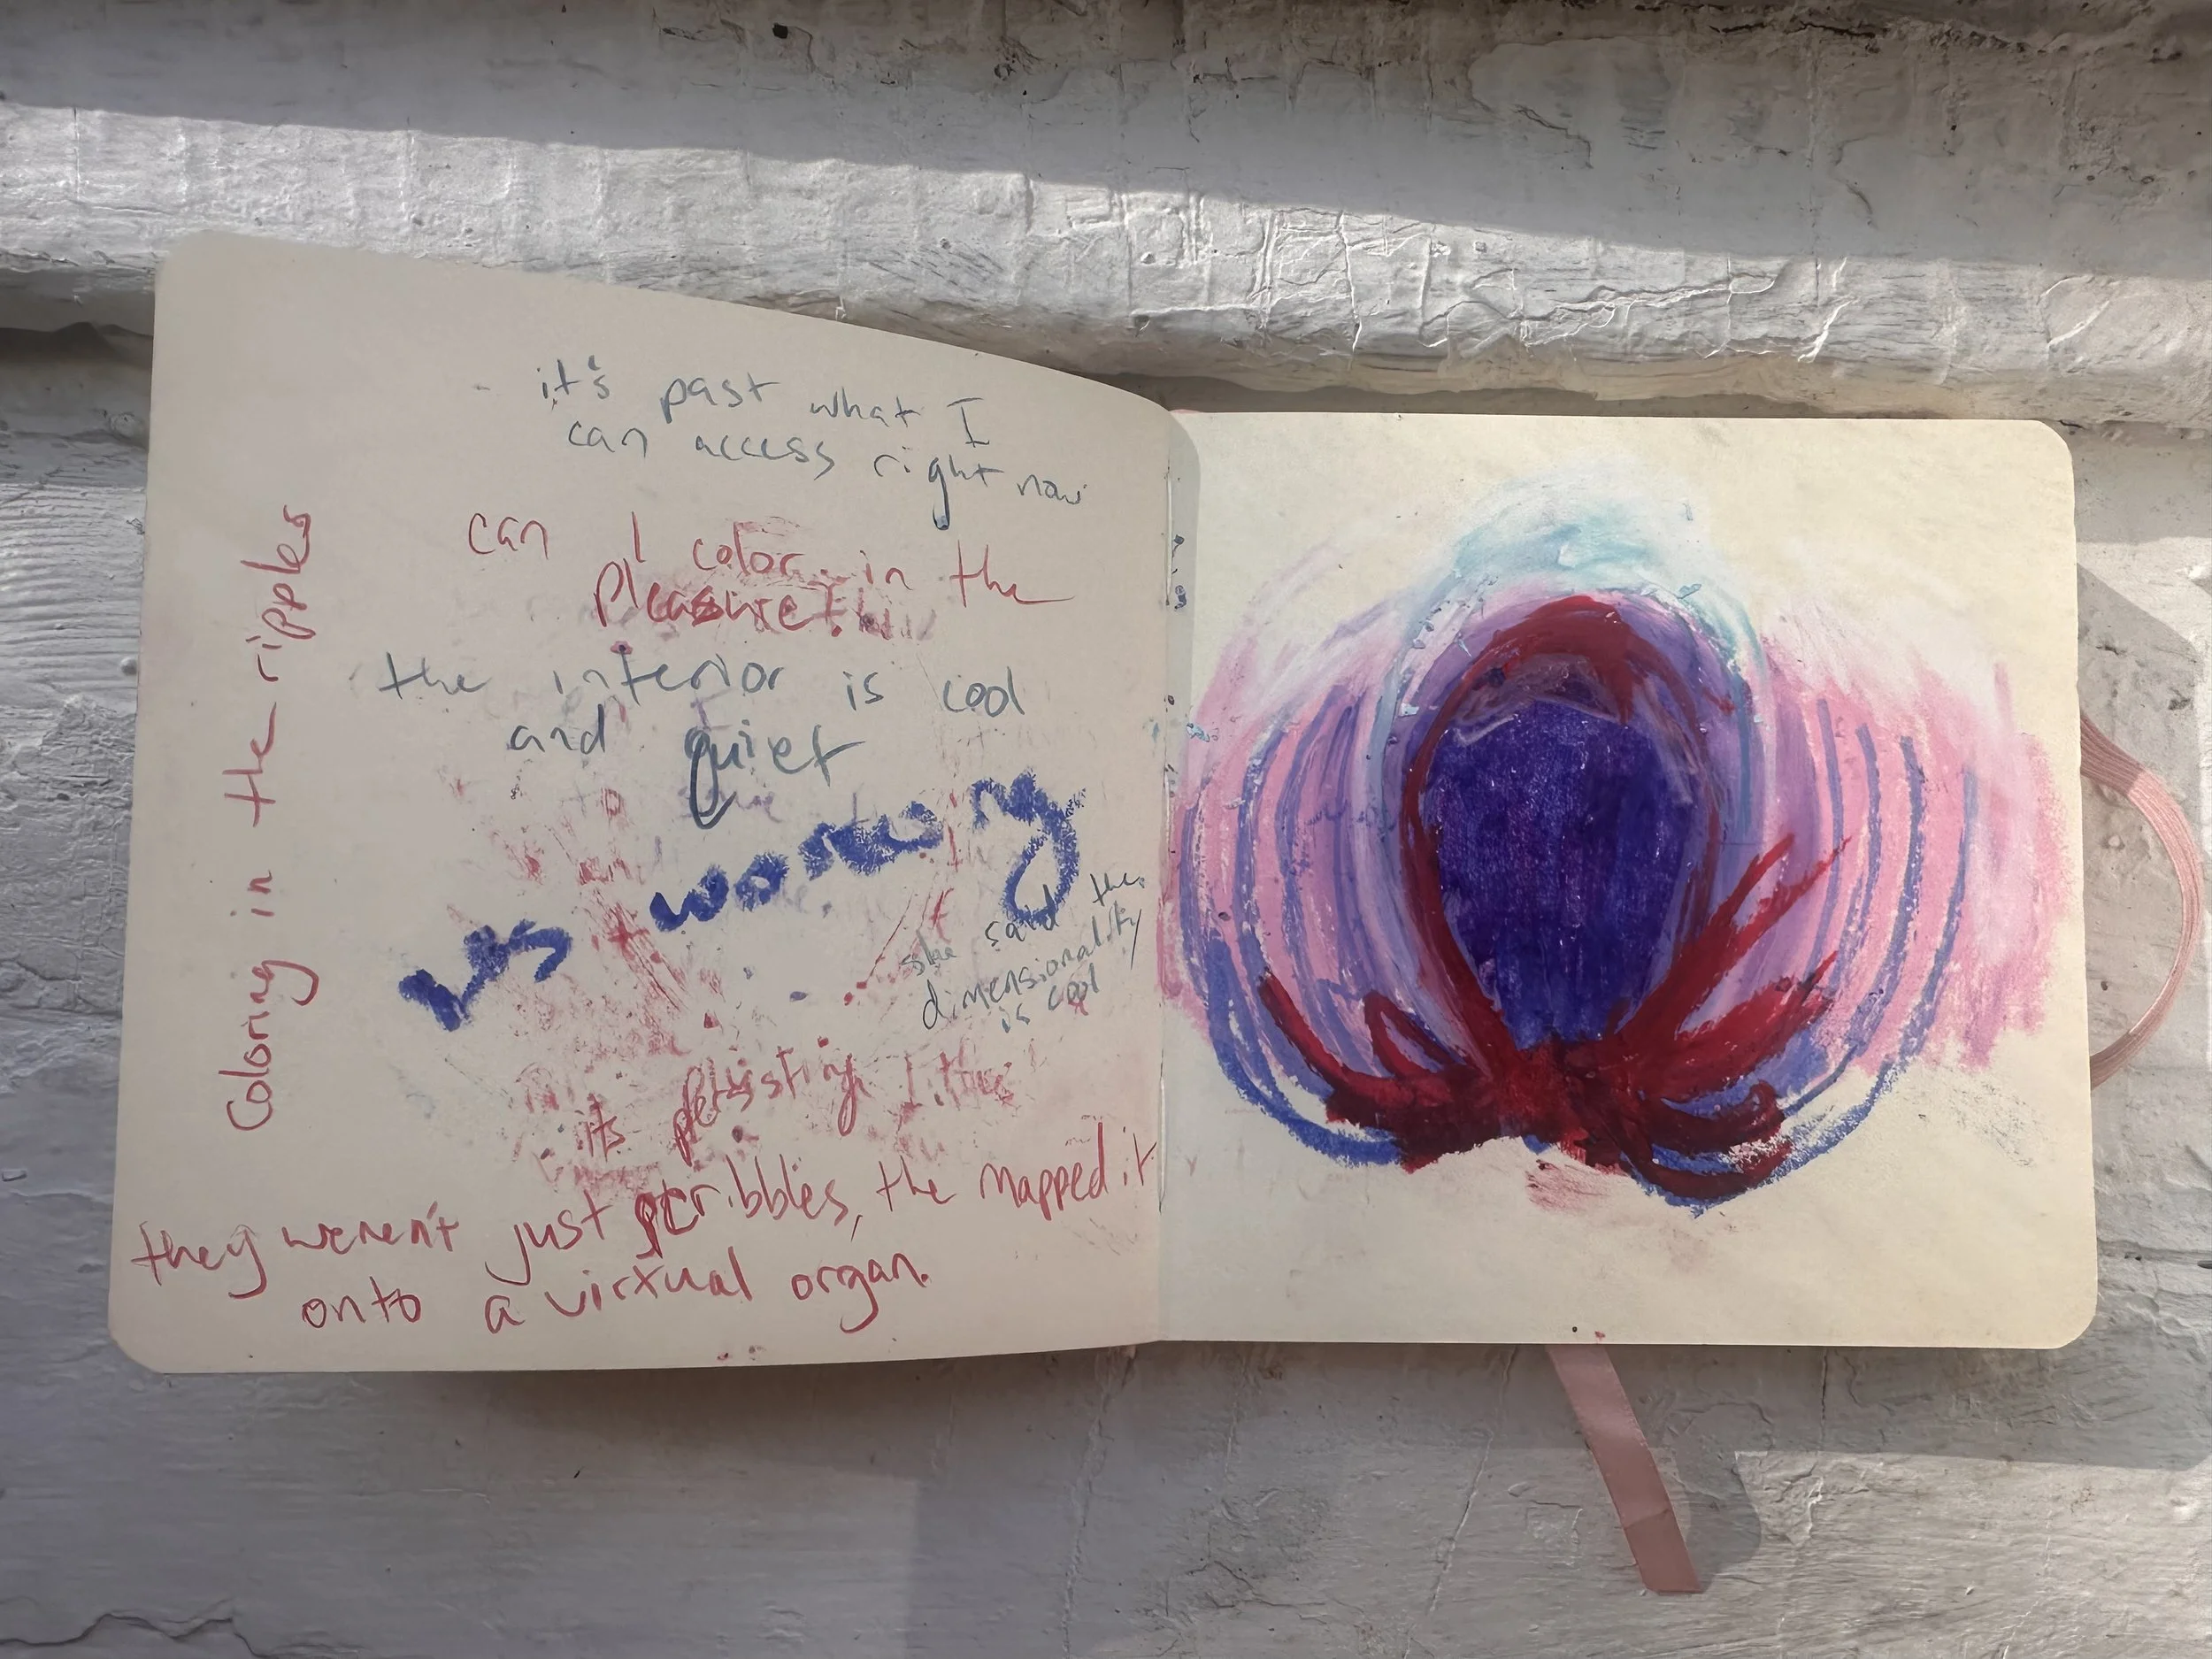 it's past what I
can access right now
can I color in the
pleasure
the interior is cool
and quiet
its working
she said the
dimensionality
is cool
its persisting
they weren't just scribbles, the mapped it
onto a virtual organ.
Coloring in the ripples